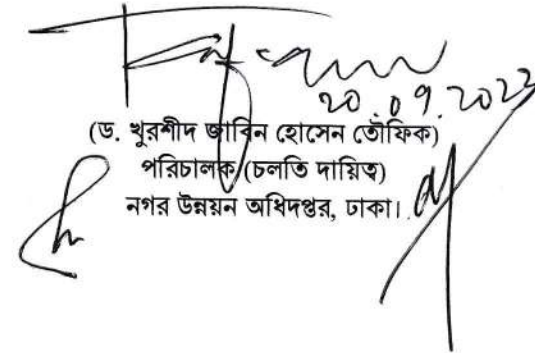 20.09.2023
(ড. খুরশীদ জাবিন হোসেন তৌফিক)
পরিচালক (চলতি দায়িত্ব)
নগর উন্নয়ন অধিদপ্তর, ঢাকা।